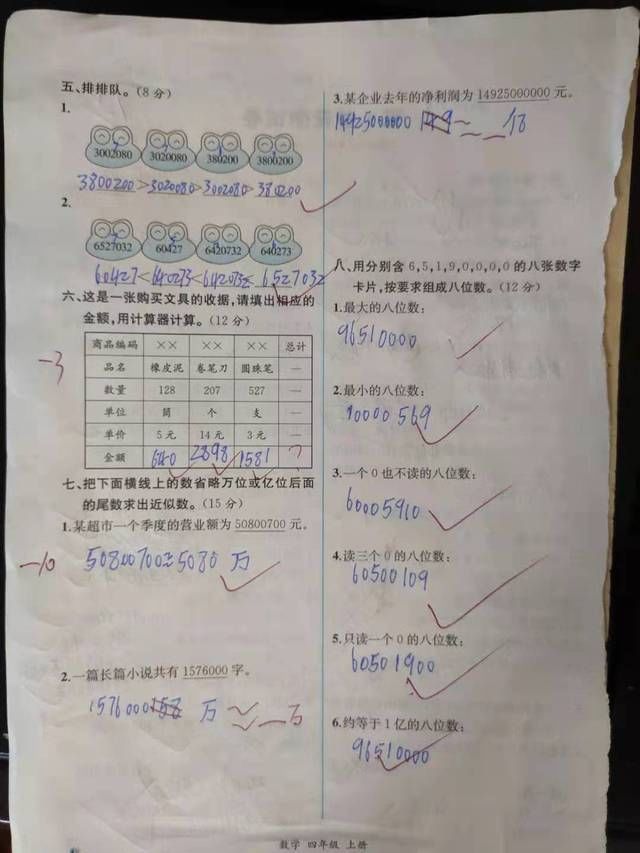 五、排排队。(8分)
1.
3002080 3020080 380200 3800200
3800200>3020080>3002080>380200
2.
6527032 60427 6420732 640273
60427<640273<6420732<6527032
六、这是一张购买文具的收据,请填出相应的
金额,用计算器计算。(12分)
商品编码 ×× ×× ×× 总计
品名 橡皮泥 卷笔刀 圆珠笔 —
数量 128 207 527 —
单位 筒 个 支 —
单价 5元 14元 3元 —
金额 640 2898 1581 ?
-3
七、把下面横线上的数省略万位或亿位后面
的尾数求出近似数。(15分)
1.某超市一个季度的营业额为50800700元。
50800700≈5080 万
-10
2.一篇长篇小说共有1576000字。
1576000 158 万 ≈ 万
3.某企业去年的净利润为14925000000元。
14925000000 149 ≈
八、用分别含6,5,1,9,0,0,0,0的八张数字
卡片,按要求组成八位数。(12分)
1.最大的八位数:
96510000
2.最小的八位数:
10000569
3.一个0也不读的八位数:
60005910
4.读三个0的八位数:
60500109
5.只读一个0的八位数:
60501900
6.约等于1亿的八位数:
96510000
数学 四年级 上册